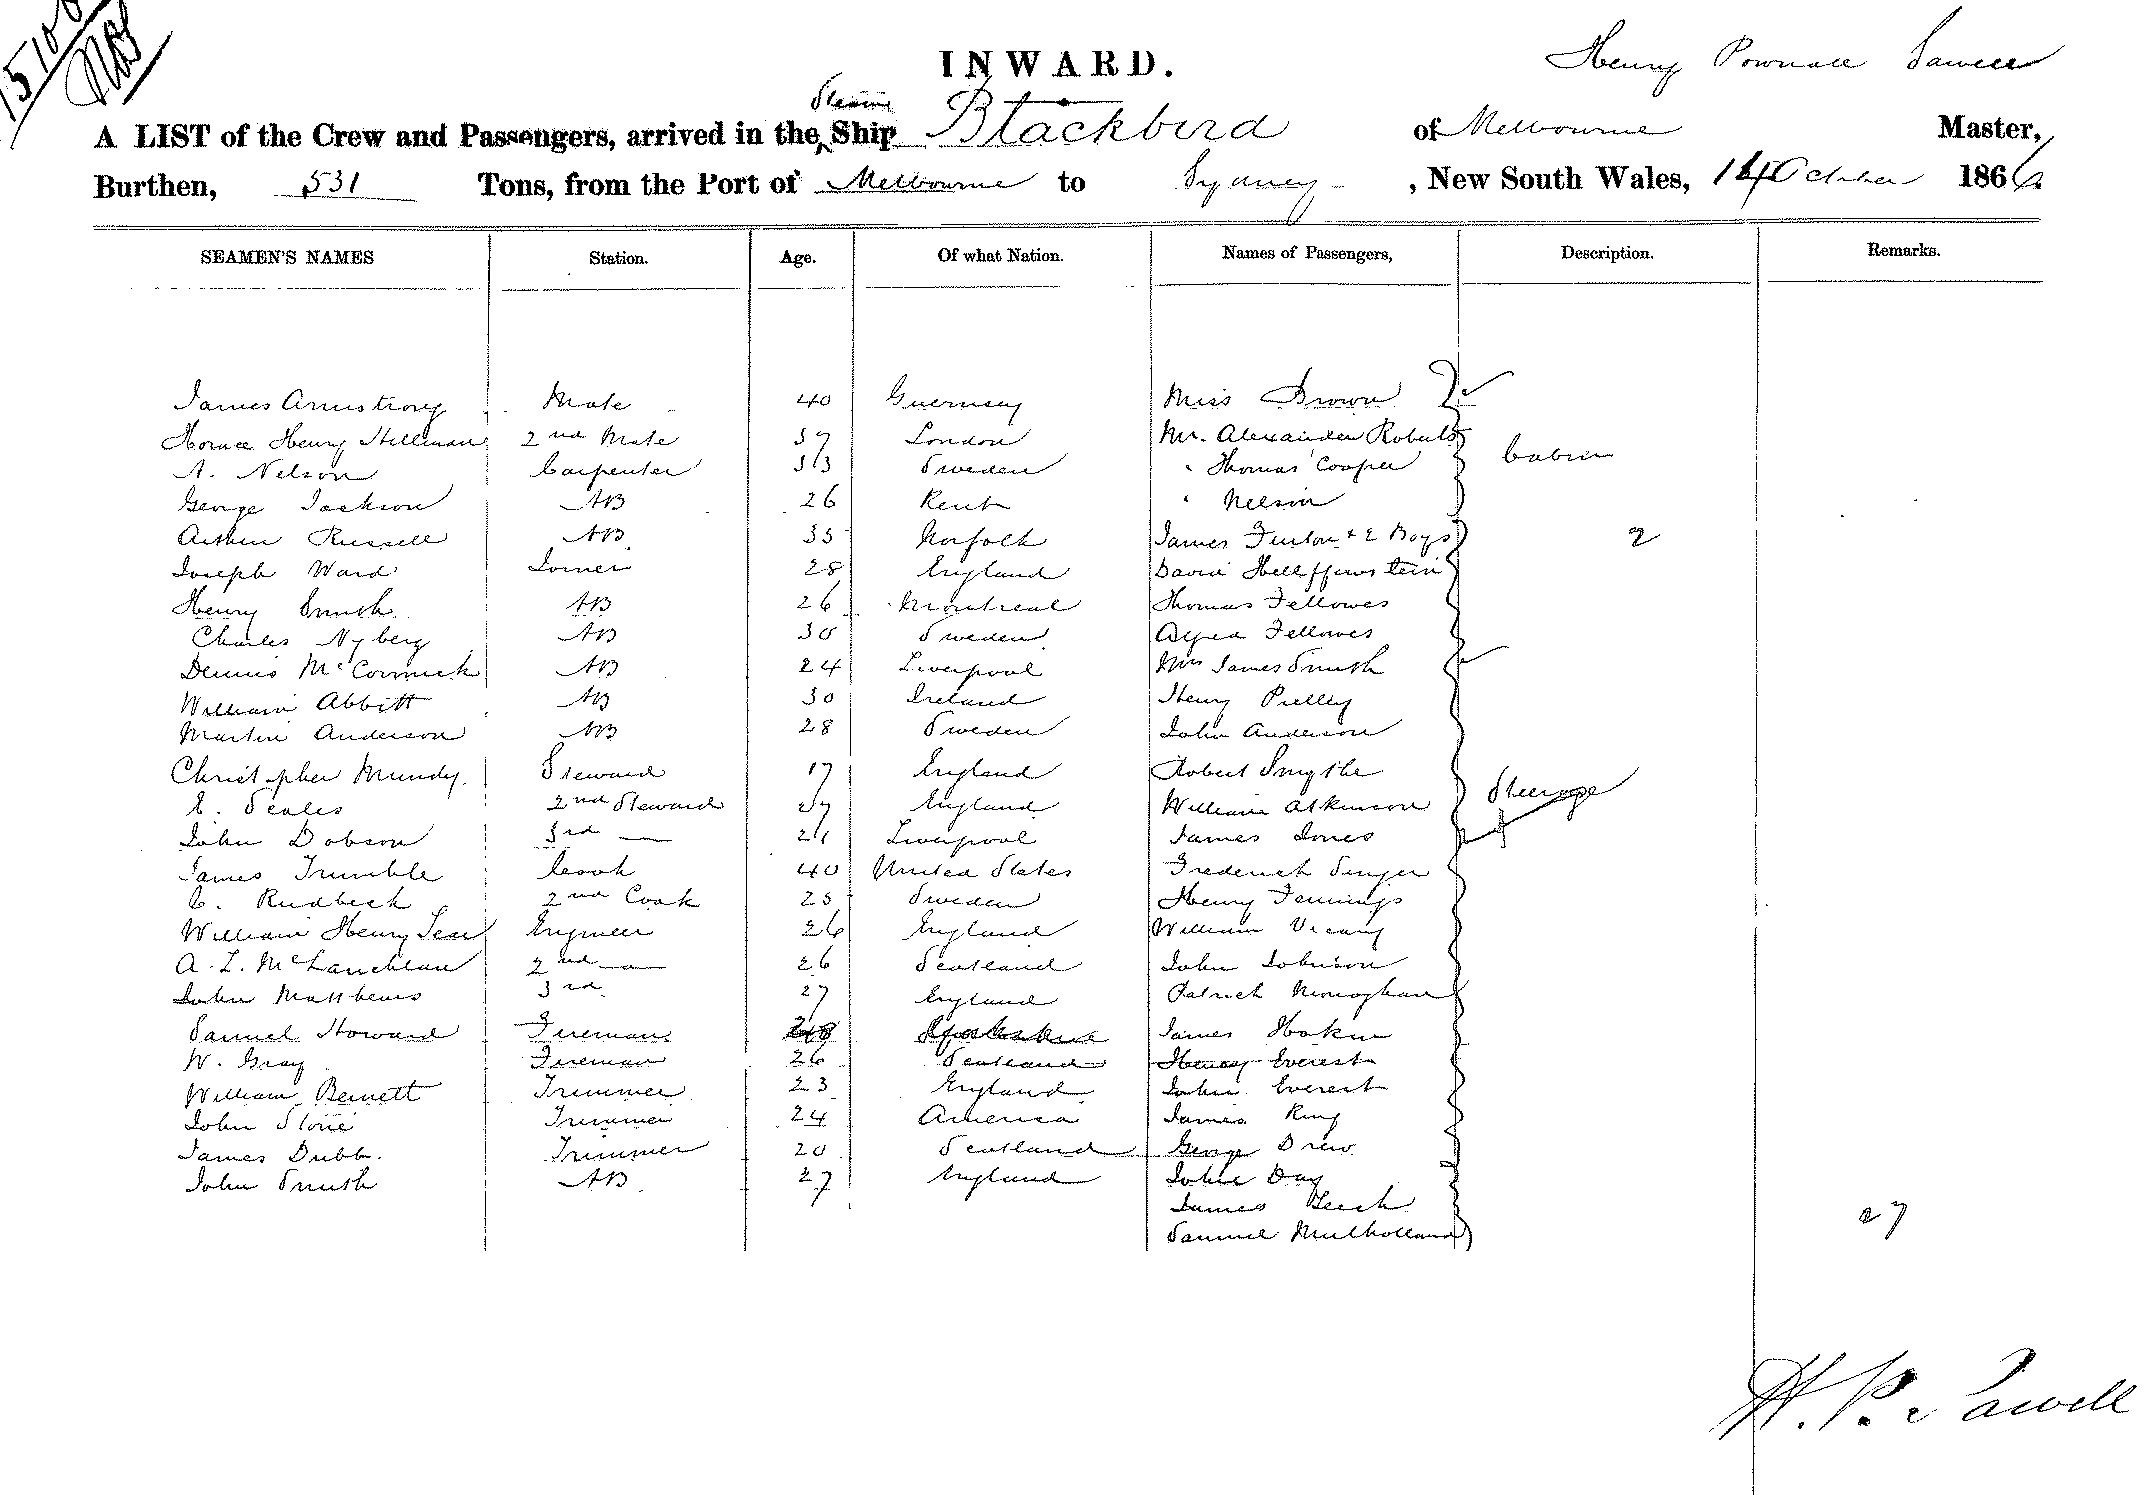 INWARD.
Henry Pownall Sawell
A LIST of the Crew and Passengers, arrived in the Steam Ship Blackbird of Melbourne Master,
Burthen, 531 Tons, from the Port of Melbourne to Sydney, New South Wales, 14 October 1866
SEAMEN'S NAMES Station. Age. Of what Nation. Names of Passengers, Description. Remarks.
James Armstrong Mate 40 Guernsey Miss Brown
Horace Henry Hillman 2nd Mate 37 London Mr. Alexander Roberts
A. Nelson Carpenter 33 Sweden " Thomas Cooper Cabin
George Jackson AB 26 Kent " Nelson
Arthur Russell AB 35 Norfolk James Fenton + 2 Boys 2
Joseph Ward 28 England David
Henry Smith AB 26 Montreal Thomas Fellowes
Charles Nyberg AB 30 Sweden Alfred Fellowes
Dennis McCormick AB 24 Liverpool Mrs James Smith
William Abbitt AB 30 Ireland Henry
Martin Anderson AB 28 Sweden John Anderson
Christopher Mundy. Steward 17 England Robert Smythe
E. Scales 2nd Steward 27 England William Atkinson Steerage
John Dobson 3rd — 21 Liverpool James Jones
James Trumble Cook 40 United States Frederick Singer
C. Rudbeck 2nd Cook 25 Sweden Henry Jennings
William Henry Engineer 26 England William Vicary
A. L. McLauchlan 2nd — 26 Scotland John Johnson
John Matthews 3rd 27 England Patrick Monoghan
Samuel Howard Fireman 28 Yorkshire James Hoskin
W. Gray Fireman 26 Scotland Henry Everest
William Bennett Trimmer 23 England John Everest
John Stone Trimmer 24 America James King
James Dubb. Trimmer 20 Scotland George Drew
John Smith AB 27 England John Day
James Leech 27
Samuel Mulholland
H. P. Sawell